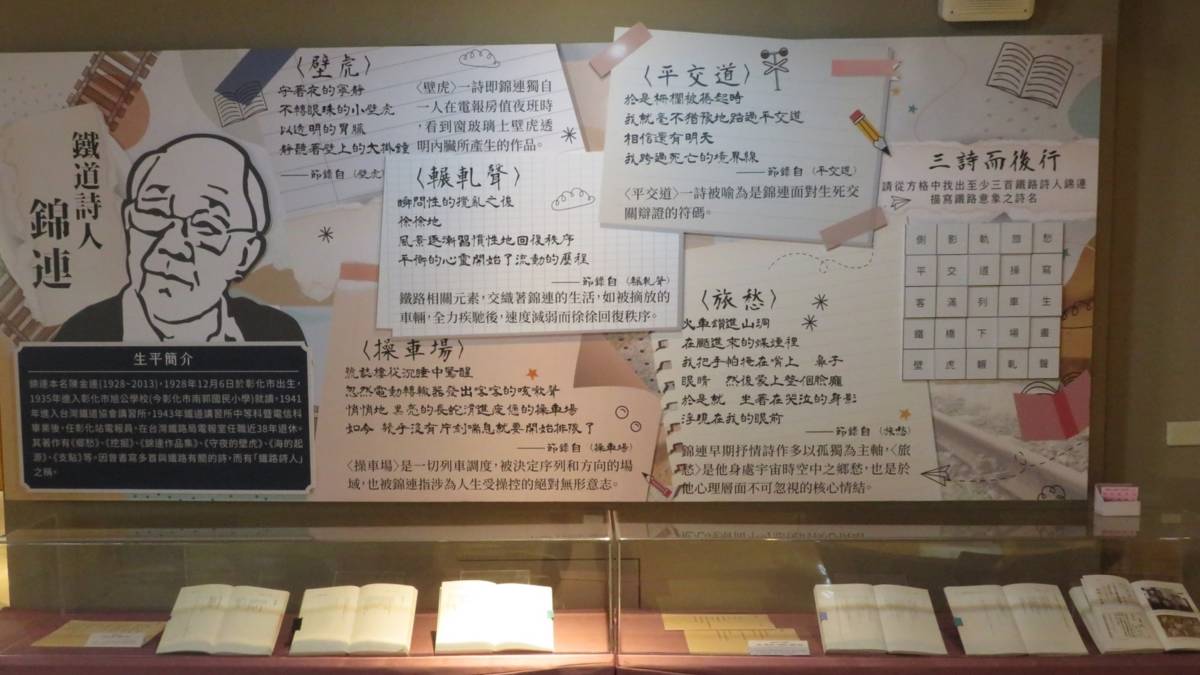 鐵道詩人
錦連
生平簡介
錦連本名陳金連(1928~2013)，1928年12月6日於彰化市出生，
1935年進入彰化市旭公學校(今彰化市南郭國民小學)就讀，1941
年進入台灣鐵道協會講習所，1943年鐵道講習所中等科暨電信科
畢業後，任彰化站電報員，在台灣鐵路局電報室任職近38年退休。
其著作有《鄉愁》、《挖掘》、《錦連作品集》、《守夜的壁虎》、《海的起
源》、《支點》等。因曾書寫多首與鐵路有關的詩，而有「鐵路詩人」
之稱。
〈壁虎〉
守著夜的寧靜
不轉眼珠的小壁虎
以透明的胃臟
靜聽著壁上的大掛鐘
——節錄自〈壁虎〉
〈壁虎〉一詩即錦連獨自
一人在電報房值夜班時
，看到窗玻璃上壁虎透
明內臟所產生的作品。
〈輾軋聲〉
瞬間性的攪亂之後
徐徐地
風景逐漸習慣性地回復秩序
平衡的心靈開始了流動的歷程
——節錄自〈輾軋聲〉
鐵路相關元素，交織著錦連的生活，如被摘放的
車輛，全力疾馳後，速度減弱而徐徐回復秩序。
〈平交道〉
於是柵欄被捲起時
我就毫不猶豫地踏過平交道
相信還有明天
我跨過死亡的境界線
——節錄自〈平交道〉
〈平交道〉一詩被喻為是錦連面對生死交
關辯證的符碼。
〈操車場〉
號誌樓從沉睡中驚醒
忽然電動轉轍器發出客客的咳嗽聲
悄悄地 黑亮的長蛇滑進疲憊的操車場
如今 幾乎沒有片刻喘息就要開始排版了
——節錄自〈操車場〉
〈操車場〉是一切列車調度，被決定序列和方向的場
域，也被錦連指涉為人生受操控的絕對無形意志。
〈旅愁〉
火車鑽進山洞
在飄進來的煤煙裡
我把手帕掩在嘴上 鼻子
眼睛 然後蒙上整個臉龐
於是就 坐著在哭泣的身影
浮現在我的眼前
——節錄自〈旅愁〉
錦連早期抒情詩作多以孤獨為主軸，〈旅
愁〉是他身處宇宙時空中之鄉愁，也是於
他心理層面不可忽視的核心情結。
三詩而後行
請從方格中找出至少三首鐵路詩人錦連
描寫鐵路意象之詩名
側影軌旅愁
平交道操寫
客滿列車生
鐵橋下場畫
壁虎輾軋聲